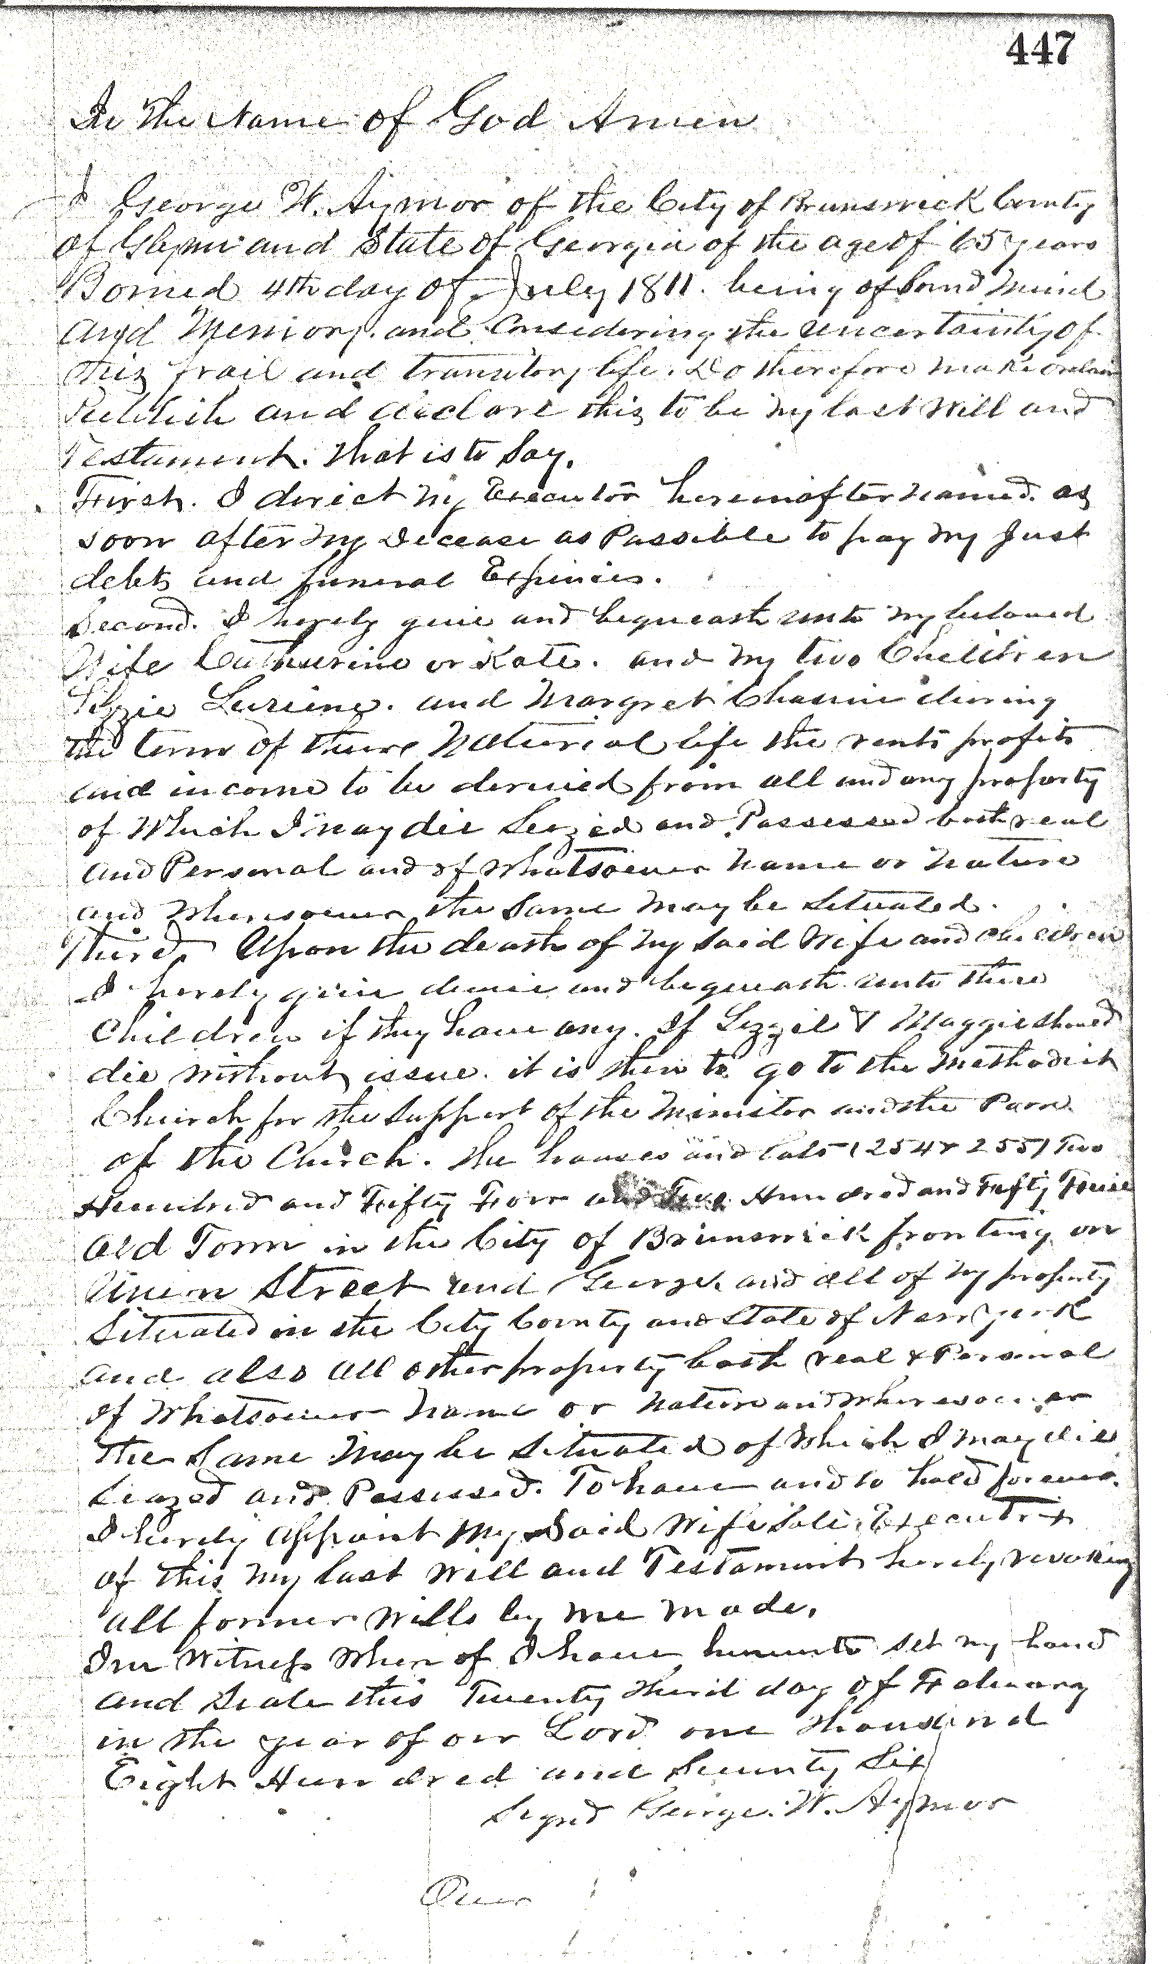 447
In the Name of God Amen
I George W. Aymor of the City of Brunswick County
of Glynn and State of Georgia of the age of 65 years
Borned 4th day of July 1811. being of Sound Mind
and Memory. and Considering the uncertainty of
this frail and transitory life. Do therefore make ordain
Publish and declare this to be my last Will and
Testament. that is to Say.
First. I direct my Executor hereinafter named. as
soon after my Decease as Possible to pay my Just
debts and funeral Expences.
Second. I herely give and bequeath unto my beloved
Wife Catherine or Kate. and my two Children
Lizzie and Margret during
the term of there Naturial life the rents profits
and income to be derived from all and any property
of Which I may die Seized and Possessed both real
and Personal and of Whatsoever name or nature
and Wheresoever the Same may be Situated.
Third. Upon the death of my Said Wife and Children
I herely give devise and bequeath unto there
Children if they have any. If Lizzie & Maggie should
die without issue. it is then to go to the Methodist
Church for the Support of the Minister and the Poor
of the Church. the houses and lots (254 & 255) Two
Hundred and Fifty Four and Two Hundred and Fifty Five
Old Town in the City of Brunswick fronting on
Union Street and George. and all of my property
Situated in the City County and State of New York
and also all other property both real & Personal
of Whatsoever name or nature and Wheresoever
the Same may be Situated of Which I may die
Seazed and Possessed. To have and to hold forever.
I herely Appoint My Said Wife Sole Executrix
of this my last Will and Testament herely revoking
all former Wills by me made.
In Witness Where of I have hereunto set my hand
and Seale this Twenty Third day of February
in the year of our Lord one thousand
Eight Hundred and Seventy Six
Signd George. W. Aymor
Over